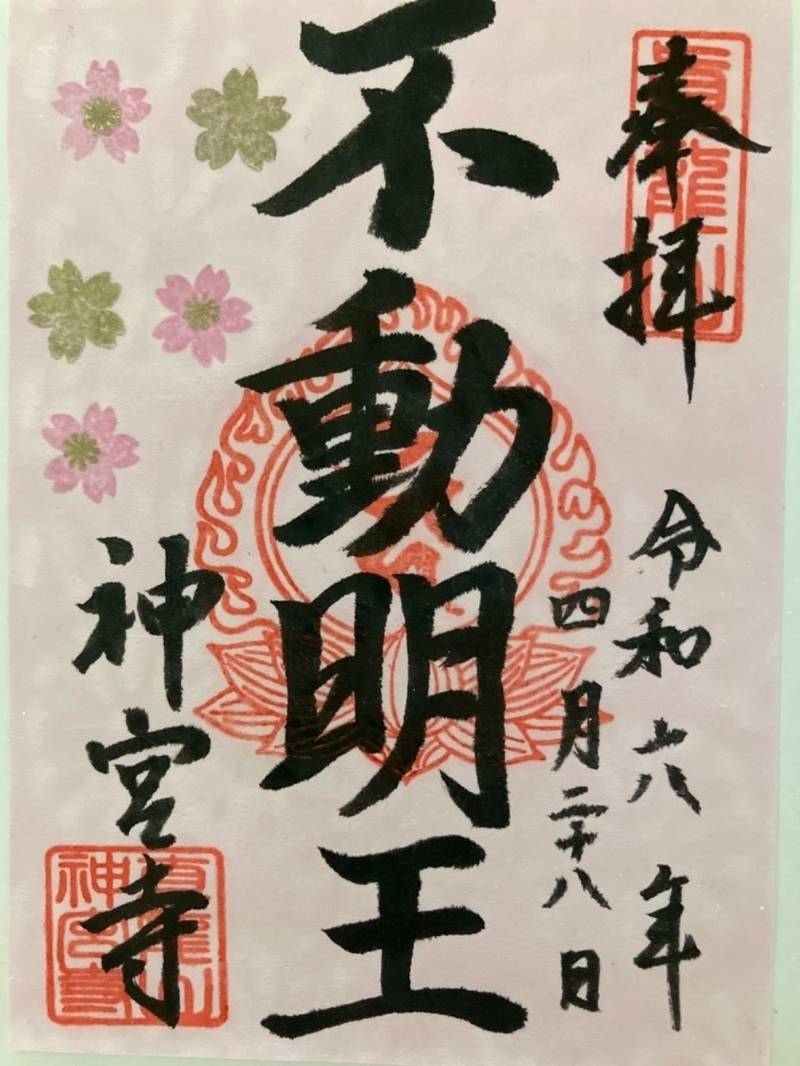 奉拝
令和六年
四月二十八日
不動明王
神宮寺